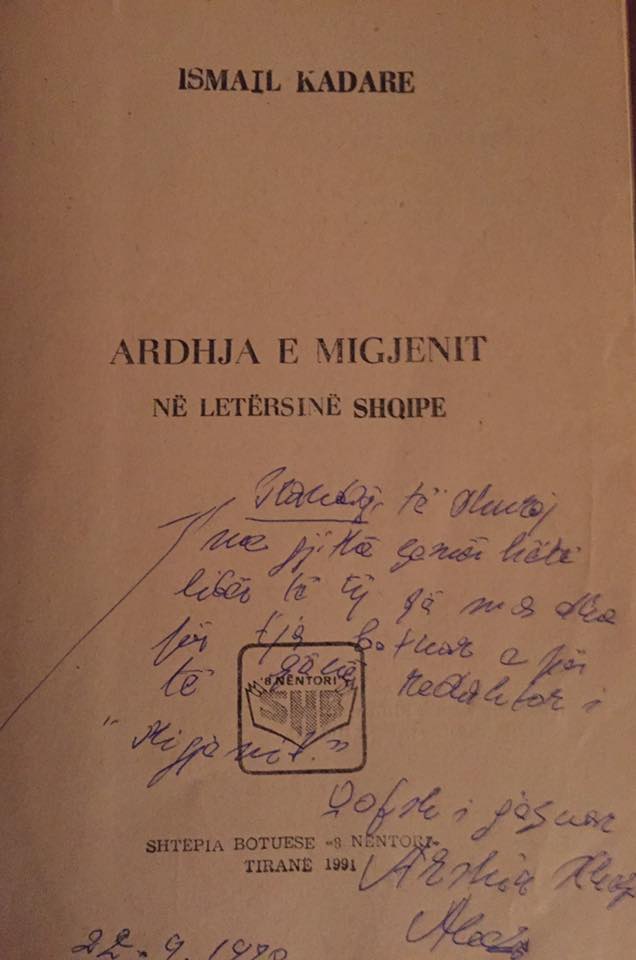 ISMAIL KADARE
ARDHJA E MIGJENIT
NË LETËRSINË SHQIPE
të dhuroj
me gjithë zemër këtë
libër të tij që m'a dha
për tja botuar e për
të qënë redaktor i
"Migjenit."
8 NËNTORI
SHB
Qofsh i gëzuar
SHTEPIA BOTUESE «8 NËNTORI»
TIRANË 1991
22-9.